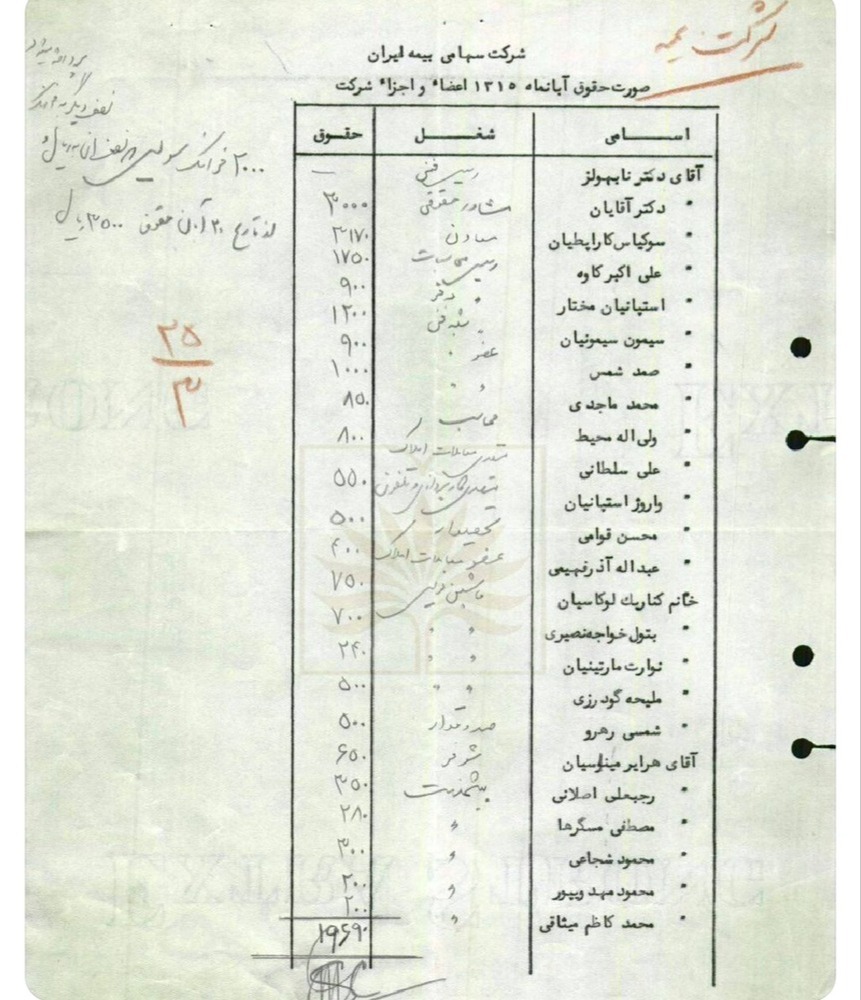 شرکت بیمه
شرکت سهامی بیمه ایران
صورت حقوق آبانماه ۱۳۱۵ اعضاء و اجزاء شرکت
اسامی شغل حقوق
آقای دکتر نایهولز رییس فنی —
" دکتر آقایان مشاور حقوقی ۳۰۰۰
" سوکیاس کاراپطیان معاون ۳۱۷۰
" علی اکبر کاوه رییس محاسبات ۱۷۵۰
" استپانیان مختار " دفتر ۹۰۰
" سیمون سیمونیان " شعبه فنی ۱۲۰۰
" صمد شمس عضو " ۹۰۰
" محمد ماجدی " " ۱۰۰۰
" ولی اله محیط محاسب ۸۵۰
" علی سلطانی متصدی معاملات املاک ۸۰۰
" واروژ استپانیان ۵۵۰
" محسن قوامی تحصیلدار ۵۰۰
" عبداله آذرفهیمی عضو معاملات املاک ۴۰۰
خانم کناریک لوکاسیان ماشین نویس ۷۵۰
" بتول خواجه نصیری " " ۷۰۰
" نوارت مارتینیان " " ۲۴۰
" ملیحه گودرزی " " ۵۰۰
" شمسی رهرو صندوقدار ۵۰۰
آقای هرایر میناسیان شوفر ۶۵۰
" رجبعلی اصلانی پیشخدمت ۳۵۰
" مصطفی مسگرها " ۲۸۰
" محمود شجاعی " ۳۰۰
" محمود مهدوپور " ۲۰۰
" محمد کاظم میثاقی " ۲۰۰
۱۹۶۹۰
۲۰۰۰ فرانک سویس
از تاریخ ۳۰ آبان حقوق ۳۵۰۰ ریال
۲۵
۳